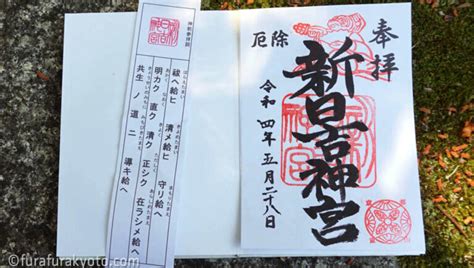 奉拝
新日吉神宮
厄除
令和四年五月二十八日
祓ヘ給ヒ 清メ給ヒ 守リ給ヘ
明カク 直ク 清ク 正シク 在ラシメ給ヘ
共生ノ道ニ 導キ給ヘ
©furafurakyoto.com